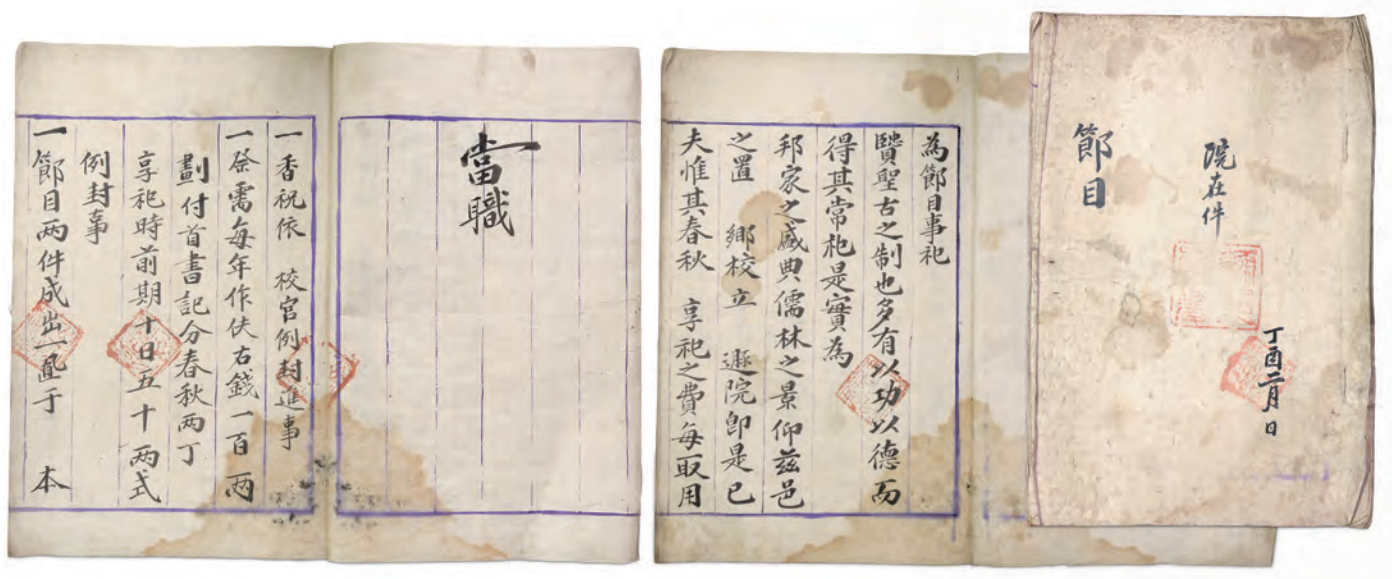 丁酉二月 日
院在件
節目
為節目事祀
賢聖古之制也多有以功以德而
得其常祀是實為
邦家之盛典儒林之景仰茲邑
之置 鄉校立 遯院卽是已
夫惟其春秋 享祀之費每取用
當職
一香祝依 校宮例封進事
一祭需每年作伕右錢一百兩
劃付首書記分春秋兩丁
享祀時前期十日五十兩式
例封事
一節目兩件成出一置于 本